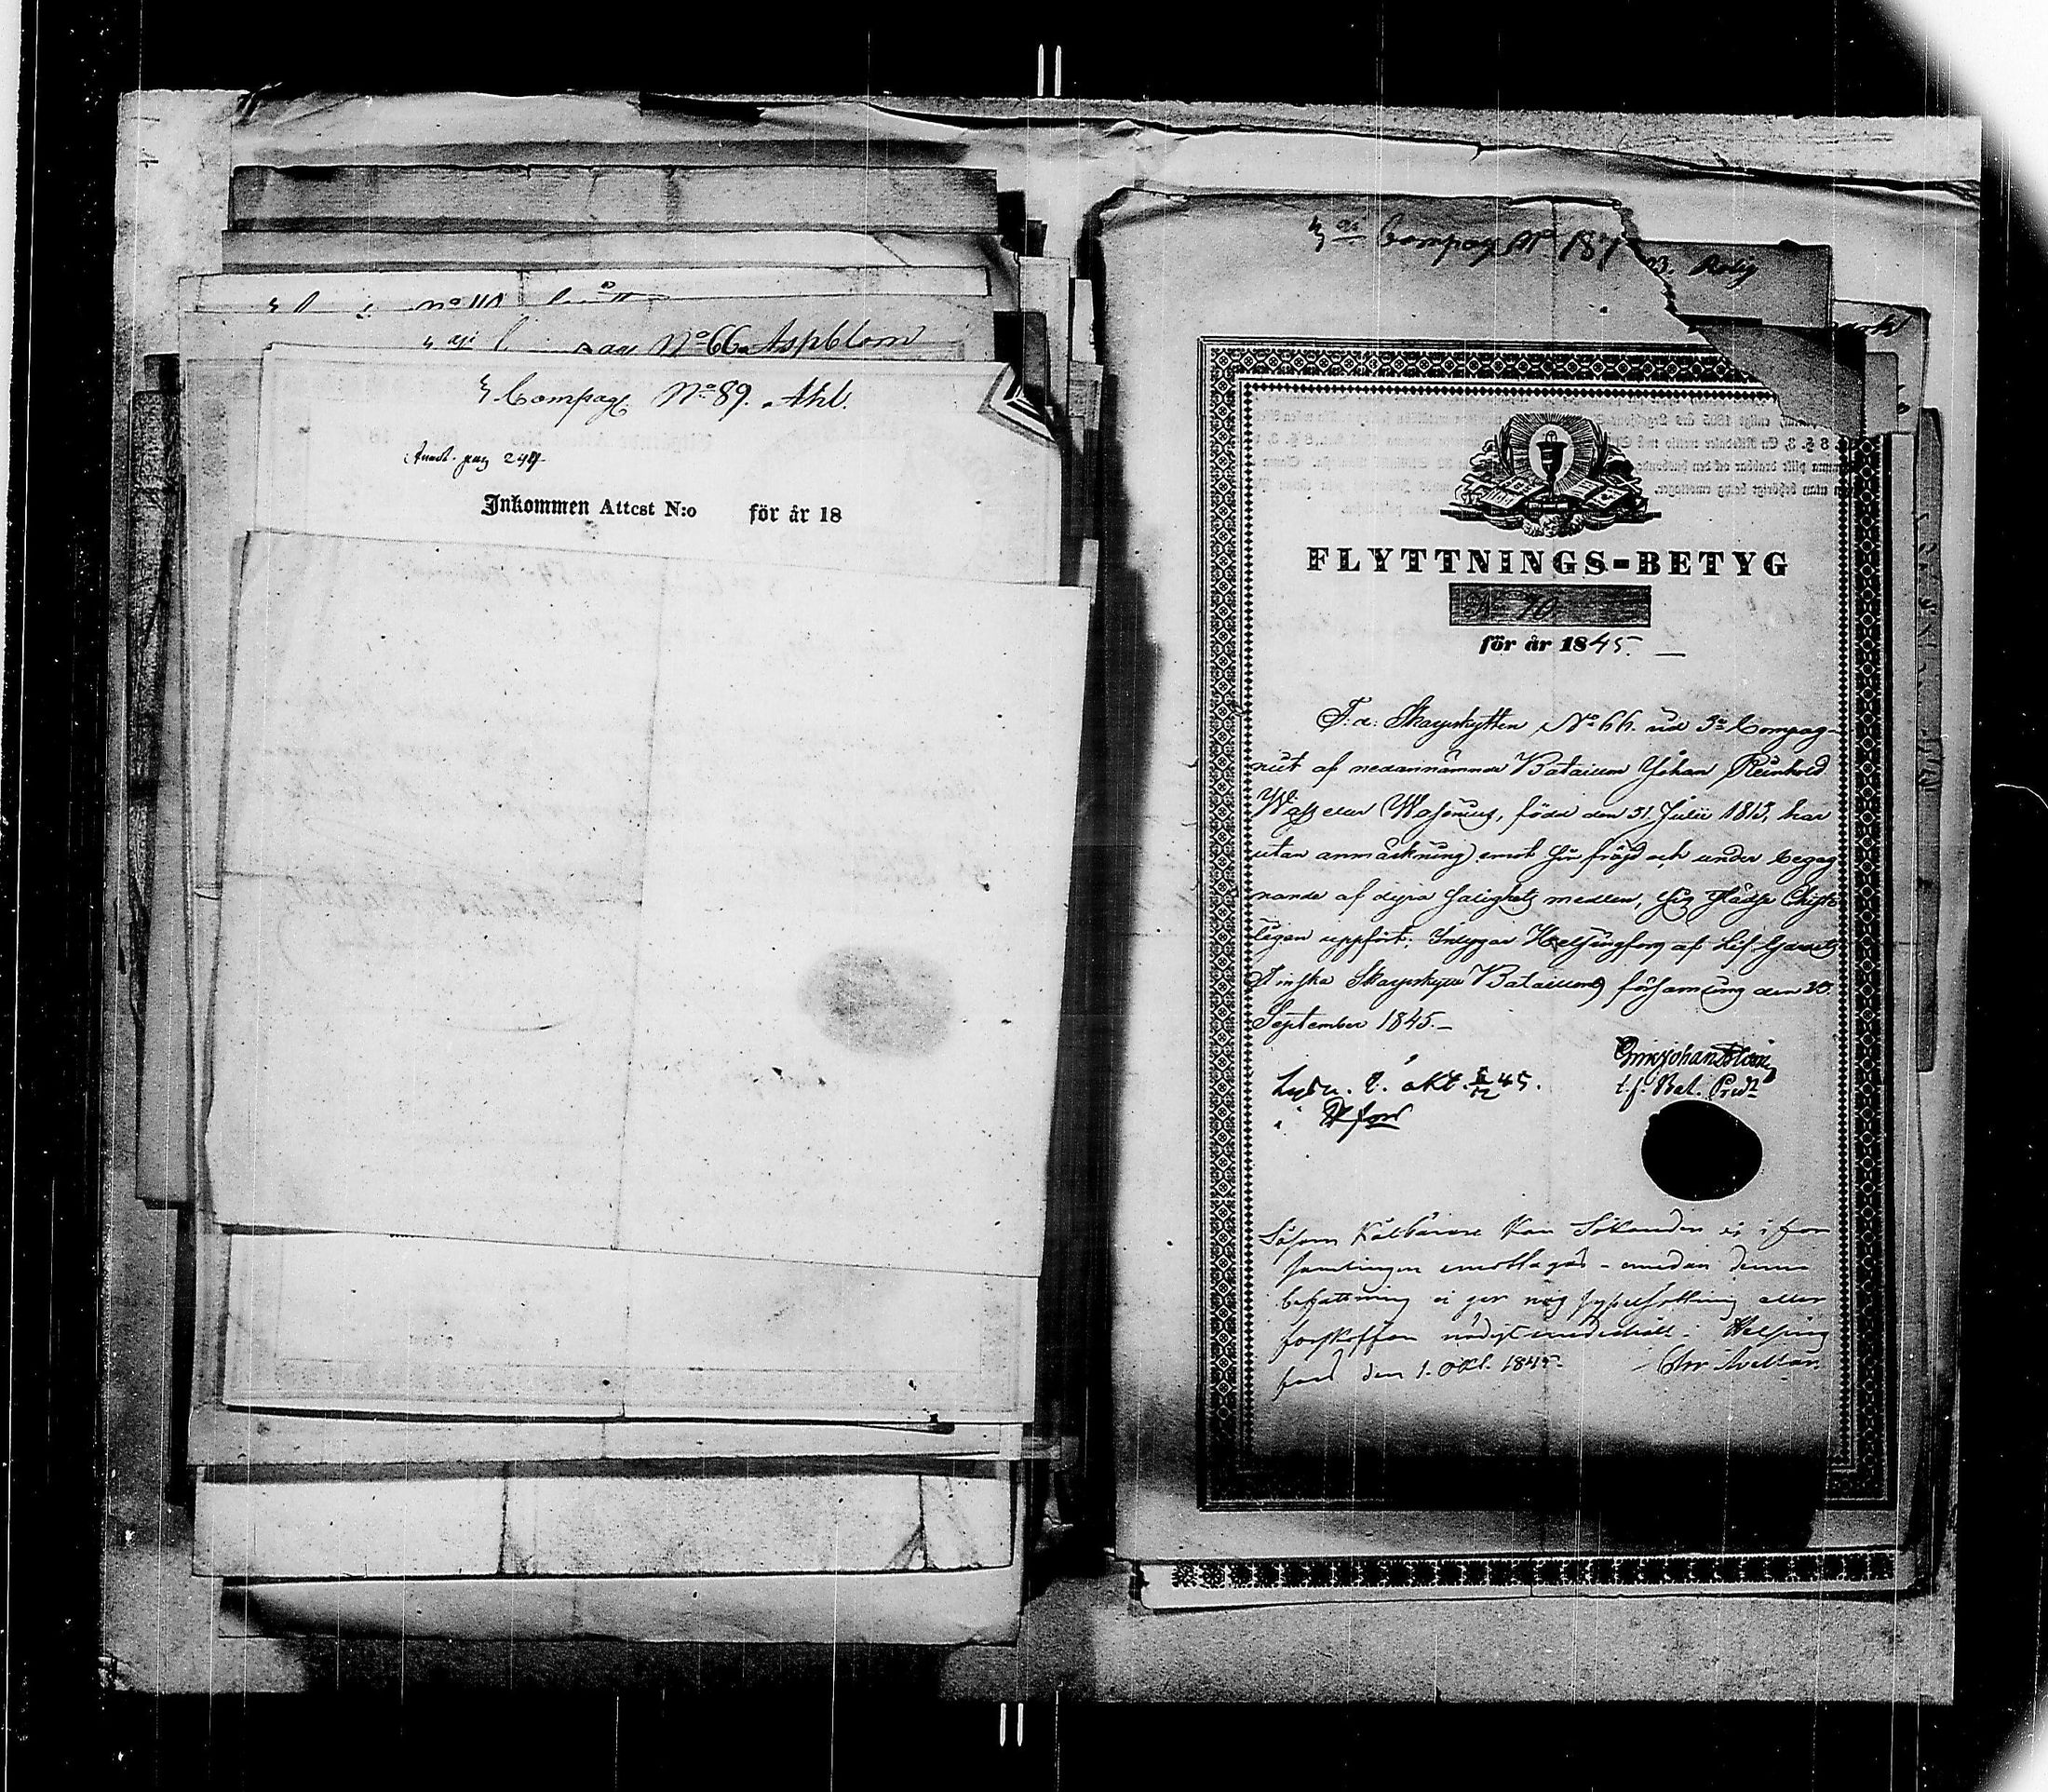 No 66. Aspblom
4 Compag. No 89. Ahl.
pag 244
Inkommen Attest N:o för år 18
Compag No 187
Rolig
FLYTTNINGS-BETYG
No 70
för år 1845.
F: d: Skarpskytten No 66. vid 3e Compag-
niet af nedannämnde Bataillon Johan Reinhold
Wass eller Wasenius, född den 31. Julii 1813, har
utan anmärkning emot sin fräjd och under begag
nande af dyra salighets medlen, sig städse Christ-
ligen uppfört; Intygar Helsingfors af Lif-Gardets
Finska Skarpskytte Bataillons församling den 30.
September 1845.
t. f. Bat. Pred.
okt. 45.
Såsom Kan Sökanden ej i för
samlingen emottagas - emedan denna
befattning ej ger nog sysselsättning eller
nödigt underhåll. Helsing
fors den 1. Okt. 1845. Chr Avellan